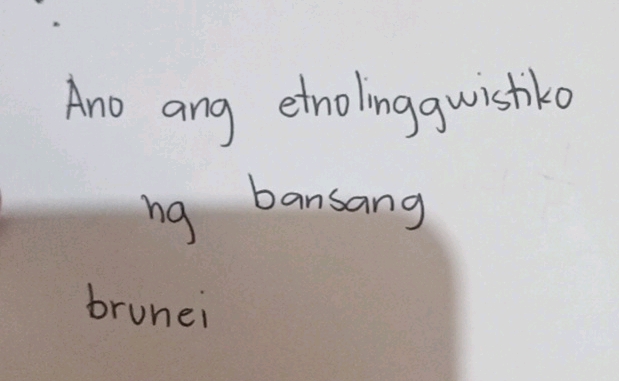 Ano ang etnolinggwistiko
ng bansang
brunei